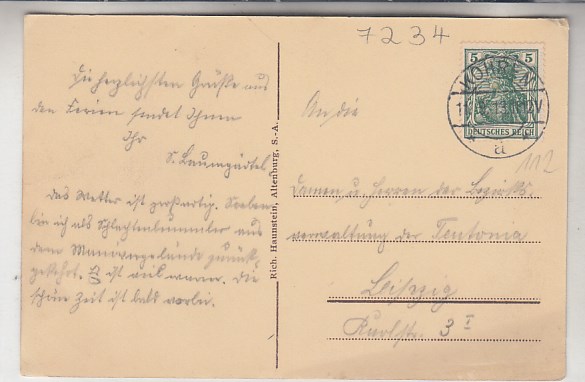 7234
Die herzlichsten Grüße aus
den Ferien sendet Ihnen
Ihr
S. Baumgärtel.
Das Wetter ist großartig. Soeben
bin ich als Schlachtenbummler aus
dem Manövergelände zurück-
gekehrt. Es ist viel warm. Die
schöne Zeit ist bald vorbei.
Rich. Haunstein, Altenburg, S.-A.
5 5
DEUTSCHES REICH
a
112
An die
Damen u. Herren der Bezirks-
verwaltung der Teutonia
Leipzig
Karlstr. 3 I